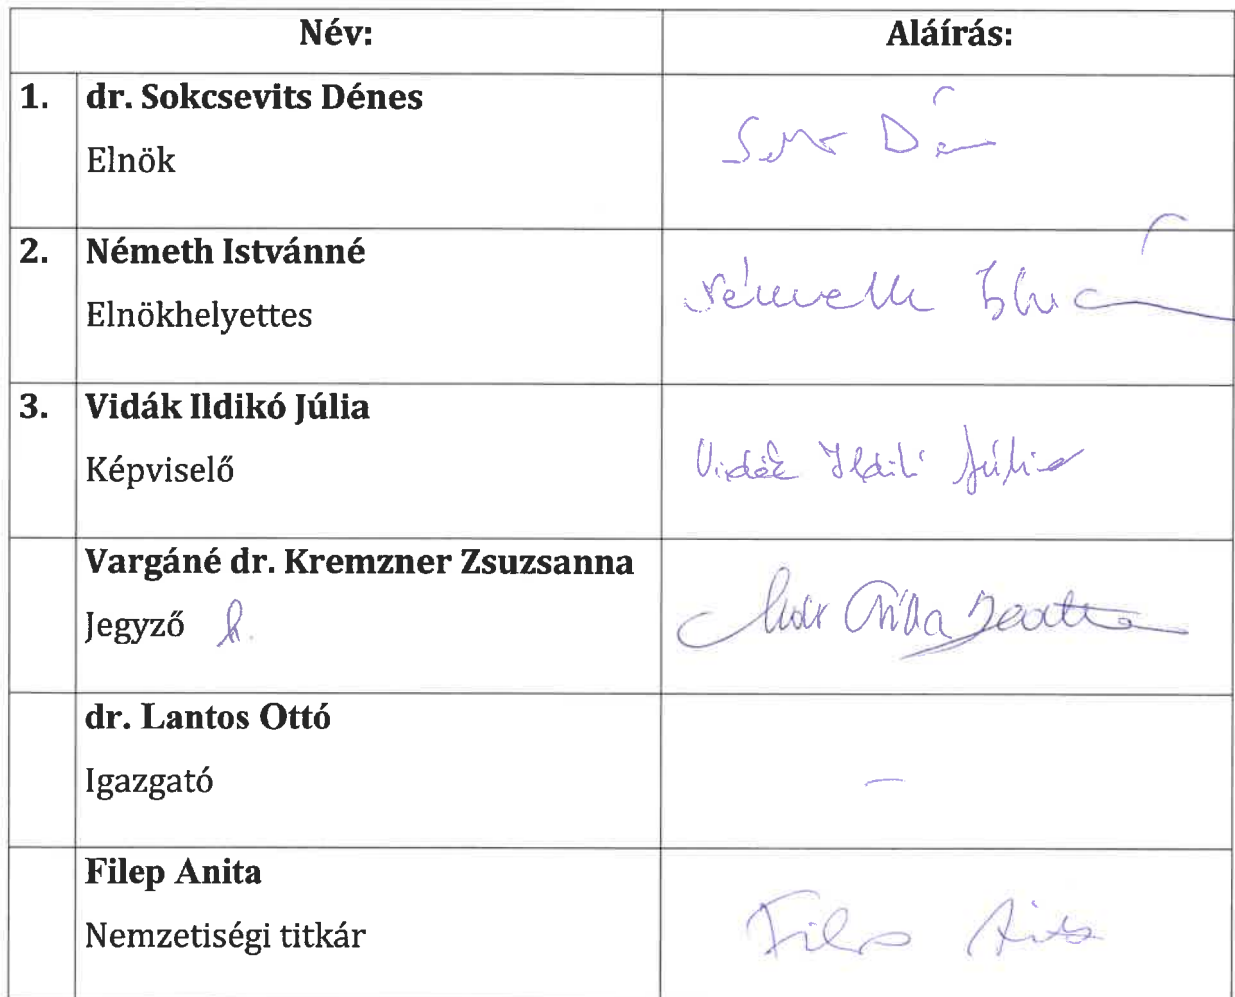 Név: Aláírás:
1. dr. Sokcsevits Dénes
Elnök
2. Németh Istvánné
Elnökhelyettes
Németh
3. Vidák Ildikó Júlia
Képviselő
Vidák Ildikó Júlia
Vargáné dr. Kremzner Zsuzsanna
Jegyző h.
dr. Lantos Ottó
Igazgató
–
Filep Anita
Nemzetiségi titkár
Filep Anita